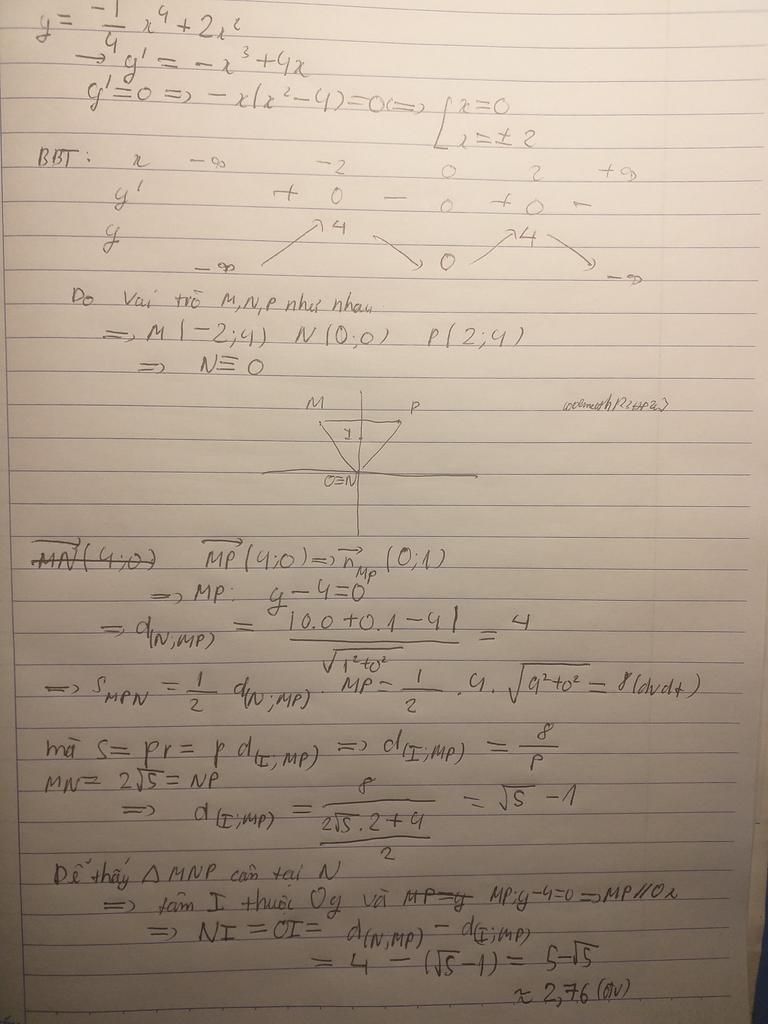 y = -1/4 x⁴ + 2x²
→ y' = -x³ + 4x
y' = 0 => -x(x² - 4) = 0 <=> [ x = 0
x = ± 2
BBT: x -∞ -2 0 2 +∞
y' + 0 - 0 + 0 -
y 4 4
-∞ 0 -∞
Do vai trò M, N, P như nhau
=> M(-2; 4) N(0; 0) P(2; 4)
=> N ≡ O
M P
I
O≡N
MN(4; 0) MP(4; 0) => n_MP (0; 1)
=> MP: y - 4 = 0
=> d(N; MP) = |0.0 + 0.1 - 4| / √(1² + 0²) = 4
=> S_MPN = 1/2 d(N; MP) . MP = 1/2 . 4 . √(4² + 0²) = 8 (đvdt)
mà S = pr = p d(I; MP) => d(I; MP) = 8/p
MN = 2√5 = NP
=> d(I; MP) = 8 / ((2√5 . 2 + 4) / 2) = √5 - 1
Dễ thấy △MNP cân tại N
=> tâm I thuộc Oy và MP = y MP: y - 4 = 0 => MP // Ox
=> NI = OI = d(N, MP) - d(I; MP)
= 4 - (√5 - 1) = 5 - √5
≈ 2,76 (đv)